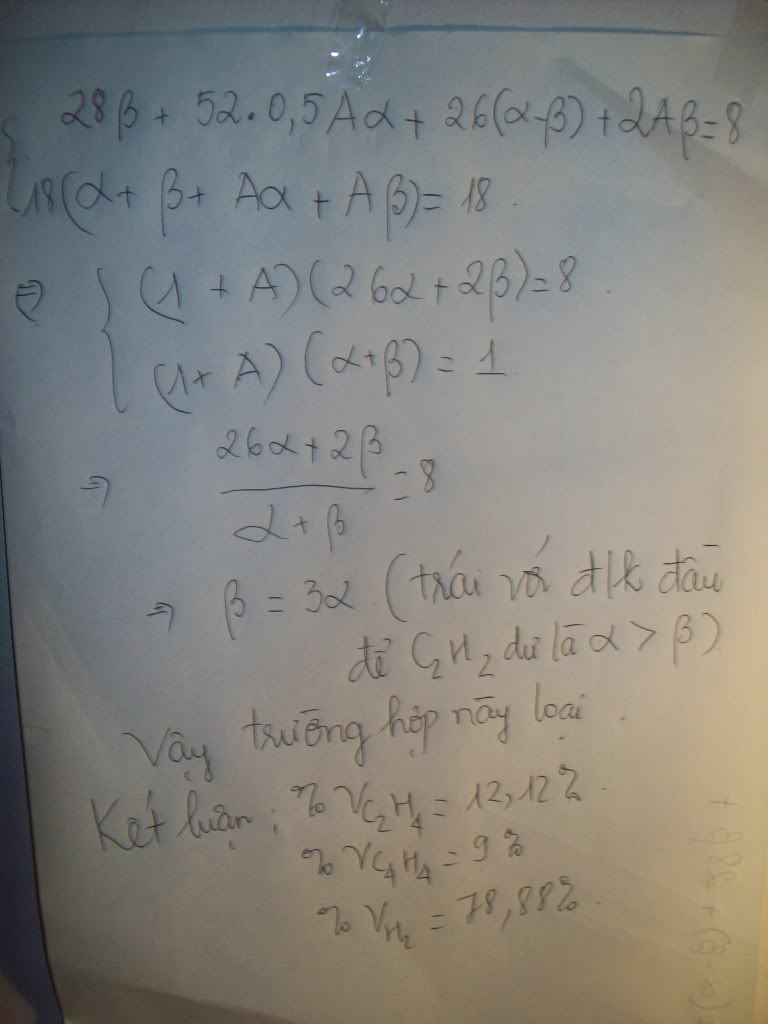 28β + 52.0,5Aα + 26(α-β) + 2Aβ = 8
18(α + β + Aα + Aβ) = 18.
⇒ { (1 + A)(26α + 2β) = 8.
(1 + A)(α + β) = 1
⇒ 26α + 2β / α + β = 8
⇒ β = 3α (trái với đ/k đầu
để C₂H₂ dư là α > β)
Vậy trường hợp này loại.
Kết luận: % V C₂H₄ = 12,12%.
% V C₄H₄ = 9%
% V H₂ = 78,88%.
(α-β) + 28β +